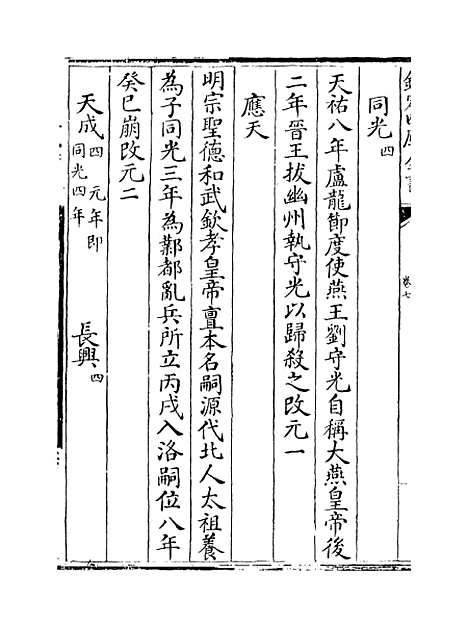 欽定四庫全書
卷七
同光四
天祐八年盧龍節度使燕王劉守光自稱大燕皇帝後
二年晉王拔幽州執守光以歸殺之改元一
應天
明宗聖德和武欽孝皇帝亶本名嗣源代北人太祖養
為子同光三年為鄴都亂兵所立丙戌入洛嗣位八年
癸巳崩改元二
天成四 元年即同光四年 長興四